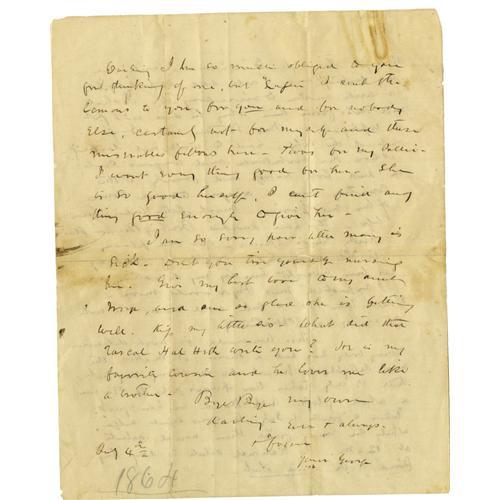 Darling I am so much obliged to you
for thinking of me, but I sent the
lemons to you, for you and for nobody
Else, certainly not for myself and these
miserable fellows here - for my
I want every thing good for her. She
is so good herself, I can't find any
thing good enough to give her -
I am so sorry, poor is
sick. Don't you tire yourself nursing
her. Give my best love to my aunt
and am so glad she is getting
well. Kiss my little sis - What did that
Rascal Hal write you? Joe is my
favorite cousin and he loves me like
a brother. Bye Bye my own
darling - Ever & always.
Yours George
4th
1864